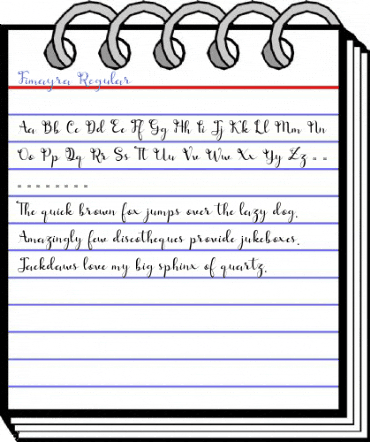 Fimayra Regular
Aa Bb Cc Dd Ee Ff Gg Hh Ii Jj Kk Ll Mm Nn
Oo Pp Qq Rr Ss Tt Uu Vv Ww Xx Yy Zz
The quick brown fox jumps over the lazy dog.
Amazingly few discotheques provide jukeboxes.
Jackdaws love my big sphinx of quartz.